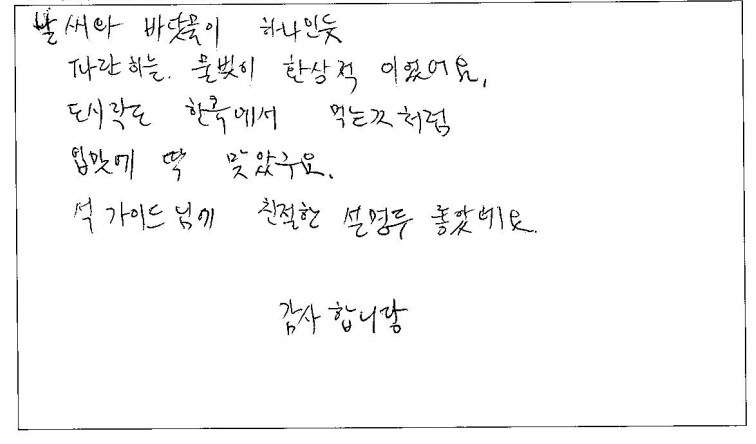 날씨와 바닷물이 하나인듯
파란하늘. 물빛이 환상적 이었어요.
도시락도 한국에서 먹는것처럼
입맛에 딱 맞았구요.
석 가이드님에 친절한 설명두 좋았네요.
감사합니당